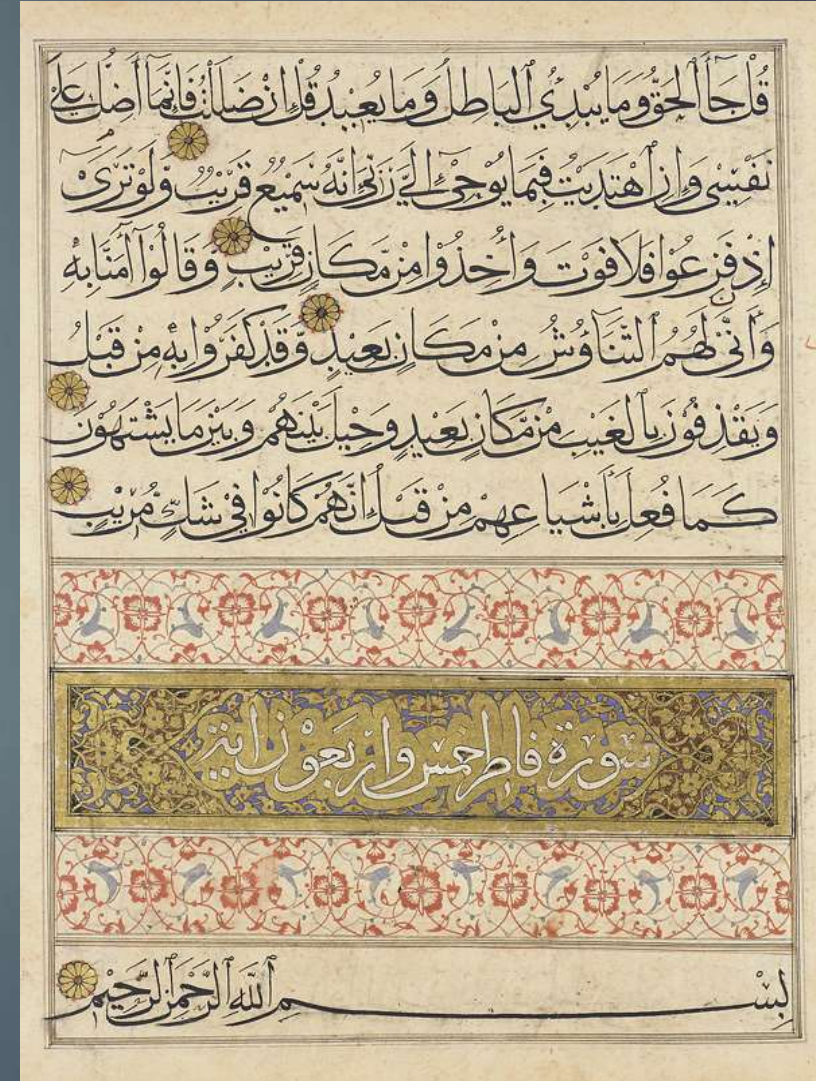 قُلْ جَاۤءَ ٱلْحَقُّ وَمَا يُبْدِئُ ٱلْبَاطِلُ وَمَا يُعِيْدُ قُلْ اِنْ ضَلَلْتُ فَاِنَّمَاۤ اَضِلُّ عَلٰى
نَفْسِىْ وَاِنِ ٱهْتَدَيْتُ فَبِمَا يُوْحِىْۤ اِلَىَّ رَبِّىْ اِنَّهُ سَمِيْعٌ قَرِيْبٌ وَلَوْ تَرٰىۤ
اِذْ فَزِعُوْا فَلَا فَوْتَ وَاُخِذُوْا مِنْ مَّكَانٍ قَرِيْبٍ وَّقَالُوْۤا اٰمَنَّا بِهٖ
وَاَنّٰى لَهُمُ ٱلتَّنَاوُشُ مِنْ مَكَانٍ بَعِيْدٍ وَّقَدْ كَفَرُوْا بِهٖ مِنْ قَبْلُ
وَيَقْذِفُوْنَ بِٱلْغَيْبِ مِنْ مَّكَانٍ بَعِيْدٍ وَحِيْلَ بَيْنَهُمْ وَبَيْنَ مَا يَشْتَهُوْنَ
كَمَا فُعِلَ بِاَشْيَاعِهِمْ مِنْ قَبْلُ اِنَّهُمْ كَانُوْا فِىْ شَكٍّ مُرِيْبٍ
سورة فاطر خمس واربعون اية
بِسْمِ ٱللّٰهِ ٱلرَّحْمٰنِ ٱلرَّحِيْمِ